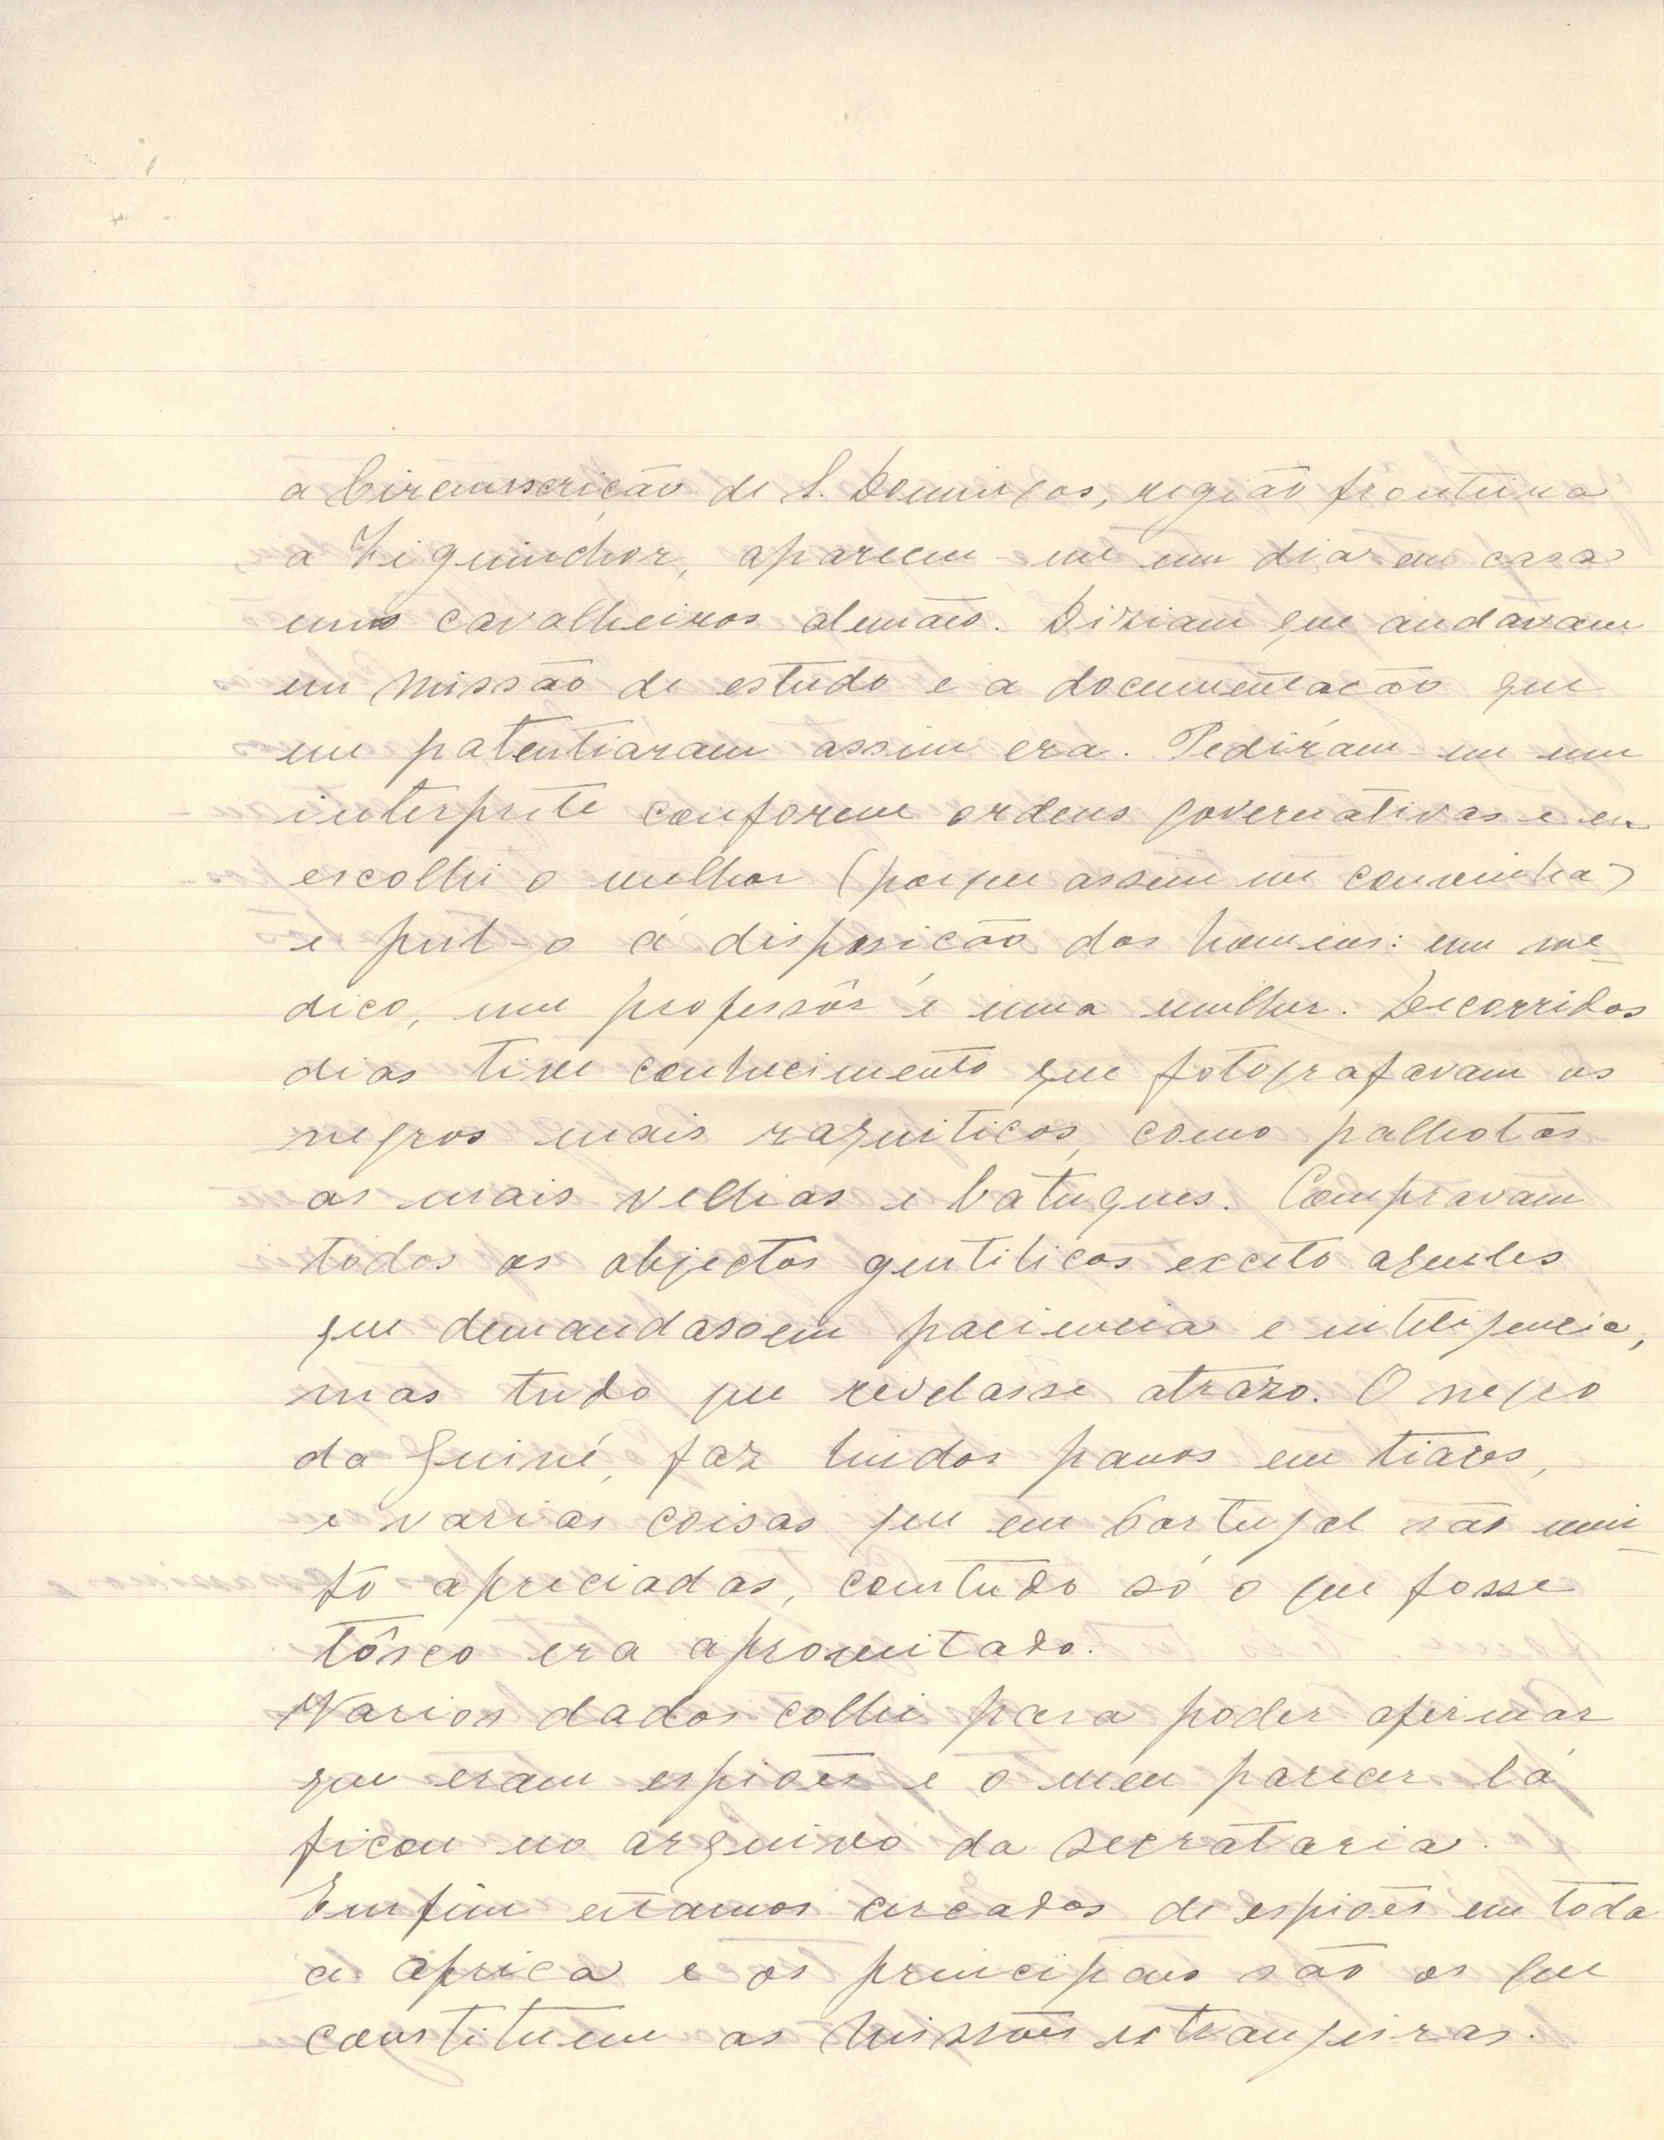 a Circunscrição de S. Domingos, região fronteira
a Ziguinchor, aparecem-me um dia em casa
uns cavalheiros alemães. Diziam que andavam
em Missão de estudo e a documentação que
me patentiáram assim era. Pedirám-me um
interprete conforme ordens governativas e eu
escolhi o melhor (porque assim me convinha)
e pul-o á disposição dos homens: um me-
dico, um professôr e uma mulher. Decorridos
dias tive conhecimento que fotografavam os
negros mais raquiticos, como palhotas
as mais velhas e batuques. Compravam
todos os objectos gentilicos exceto aqueles
que demandassem paciencia e inteligencia,
mas tudo que revelasse atrazo. O negro
da Guiné, faz lindos panos em tiares,
e varias coisas que em Portugal são mui-
to apreciadas, comtudo só o que fosse
tôsco era aproveitado.
Varios dados colhi para poder afirmar
que eram espiões e o meu parecer lá
ficou no arquivo da secrataria.
Emfim estamos cercados de espiões em toda
a africa e os principais são os que
constituem as Missões estrangeiras.